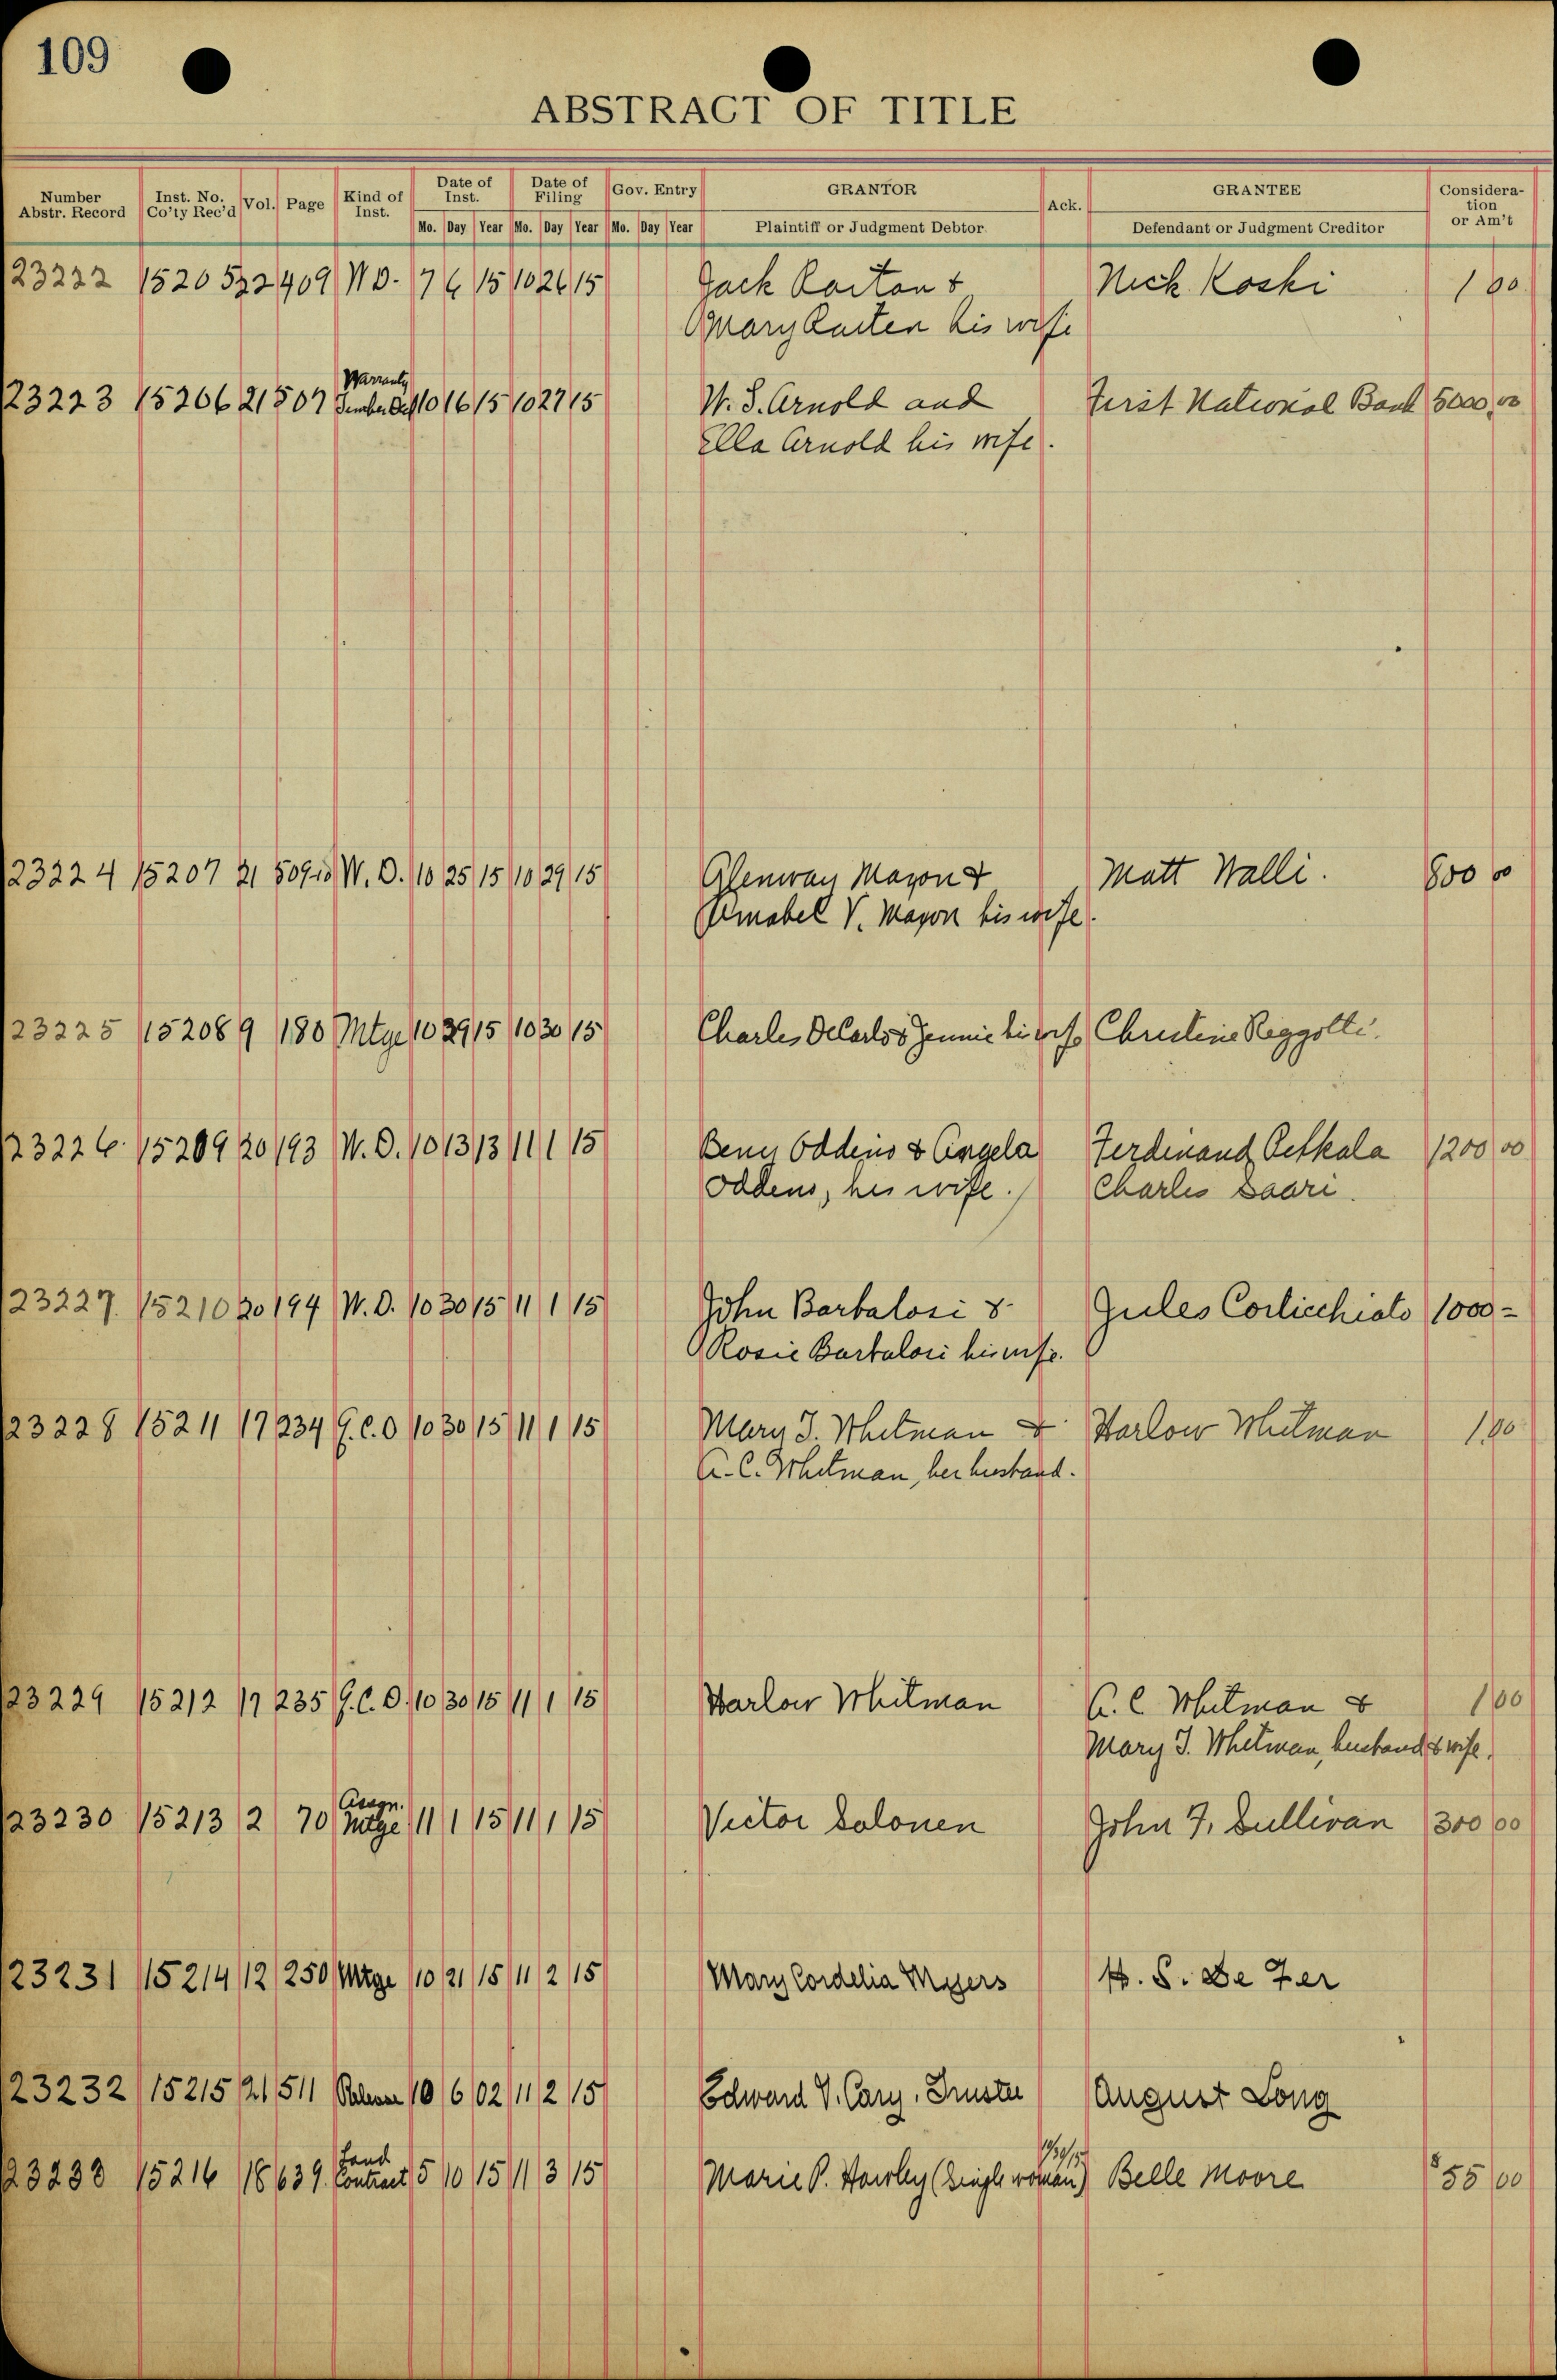 109
ABSTRACT OF TITLE
Number Abstr. Record Inst. No. Co'ty Rec'd Vol. Page Kind of Inst. Date of Inst. Date of Filing Gov. Entry GRANTOR Ack. GRANTEE Consideration or Am't
Mo. Day Year Mo. Day Year Mo. Day Year Plaintiff or Judgment Debtor Defendant or Judgment Creditor
23222 15205 22 409 W.D. 7 6 15 10 26 15 Jack & Nick Koski 1 00
Mary his wife
Warranty
23223 15206 21 507 10 16 15 10 27 15 W. S. Arnold and First National Bank 5000,00
Ella Arnold his wife.
23224 15207 21 509-10 W. D. 10 25 15 10 29 15 Glenway Mayon & Matt Walli. 800 00
Amabel V. Mayon his wife.
23225 15208 9 180 Mtge 10 29 15 10 30 15 Charles DeCarlo & Jennie his wife Christine
23226. 15209 20 193 W. D. 10 13 13 11 1 15 Oddens & Angela Ferdinand Petkala 1200 00
Oddens, his wife. Charles Saari.
23227. 15210 20 194 W. D. 10 30 15 11 1 15 John Barbalosi & Jules Corlicchiato 1000 =
Rosie Barbalosi his wife.
23228 15211 17 234 Q.C.D 10 30 15 11 1 15 Mary J. Whitman & Harlow Whitman 1,00
A. C. Whitman, her husband.
23229 15212 17 235 Q.C.D. 10 30 15 11 1 15 Harlow Whitman A. C Whitman & 1 00
Mary J. Whitman, husband & wife.
Assgn.
23230 15213 2 70 Mtge 11 1 15 11 1 15 Victor Salonen John F. Sullivan 300 00
23231 15214 12 250 Mtge 10 21 15 11 2 15 Mary Cordelia Myers H. S. De Fer
23232 15215 21 511 Release 10 6 02 11 2 15 Edward V. Cary, Trustee August Long
Land 10/30/15
23233 15216 18 639. Contract 5 10 15 11 3 15 Marie P. Hawley (Single woman) Belle Moore $55 00